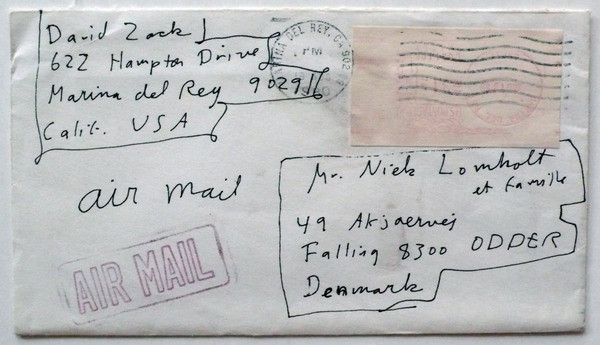 David Zack
622 Hampton Drive
Marina del Rey 90291
Calif. USA
INA DEL REY, CA 902
PM
air mail
AIR MAIL
Mr. Niels Lomholt
et famille
49 Akjaervej
Falling 8300 ODDER
Denmark